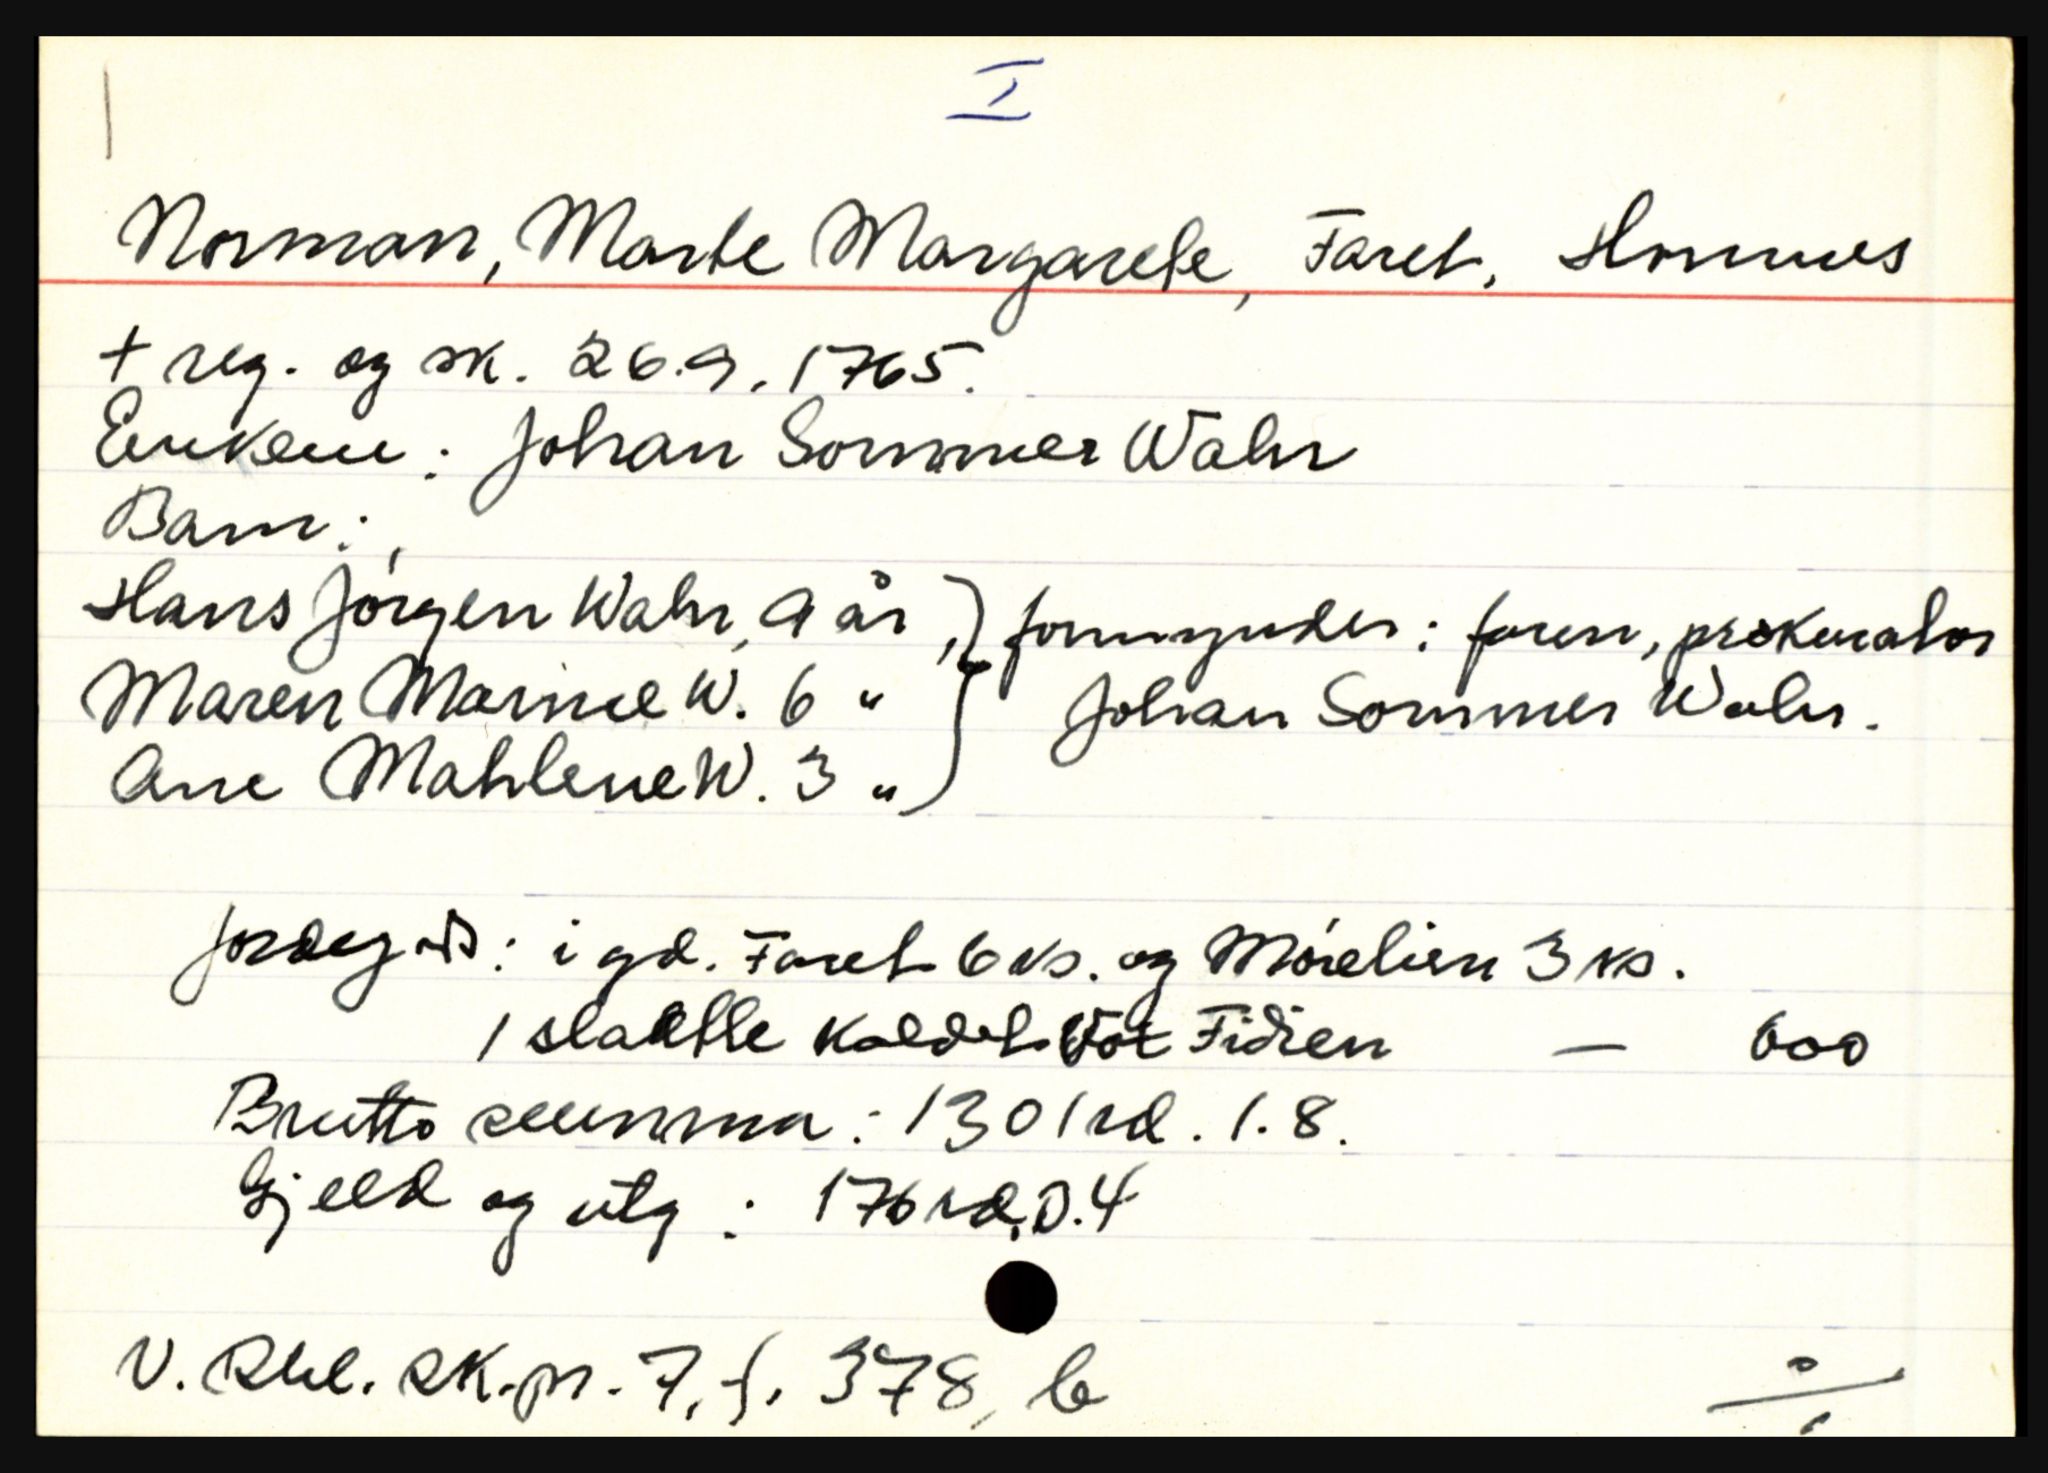 I
Norman, Marte Margarete, Faret, Hommes
+ reg. og sk. 26.9.1765.
Enkem: Johan Sommer Wahr
Barn:
Hans Jörgen Wahr, 9 år,} formynder: faren, prokurator
Maren Marine W. 6 "} Johan Sommer Wahr.
Ane Mahlene W. 3 "}
Jordegods: i gd. Faret 6 ks. og Mörelien 3 ks.
1 slaatte kaldet Fidien — 600
Brutto summa: 1301 rd. 1.8.
Gjeld og utg: 176 rd. 0.4
N. Rbl. sk.pr. 7, f. 378, b